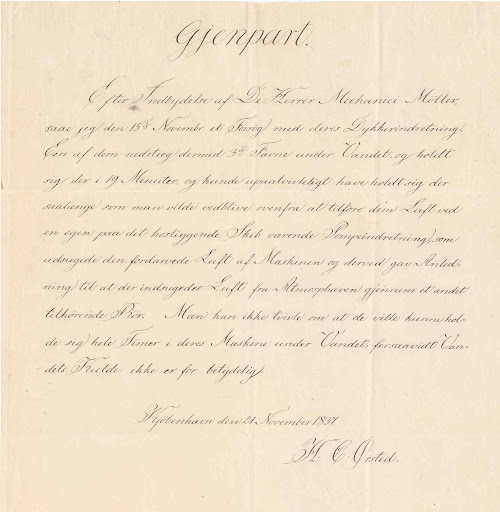 Gjenpart.
Efter Indbydelse af De Herrer Mechanici Möller,
saae jeg den 15d Novembr et Forsøg med deres Dykkerindretning.
Een af dem nedsteeg dermed 3 Favne under Vandet, og holdt
sig der i 19 Menuter, og kunde upaatvivleligt have holdt sig der
saalænge som man vilde vedblive ovenfra at tilföre dem Luft ved
en egen paa det hosliggende Skib værende Pompeindretning, som
udsugede den fordærvede Luft af Maskinen og derved gav Anled-
ning til at der indsugedes Luft fra Atmosphæren gjennem et andet
tilhörende Rör. Man kan ikke tvivle om at de ville kunne hol-
de sig hele Timer i deres Maskine under Vandet, forsaavidt Van-
dets Kulde ikke er for betydelig.
Kjöbenhavn den 21 November 1837.
H. C. Ørsted.